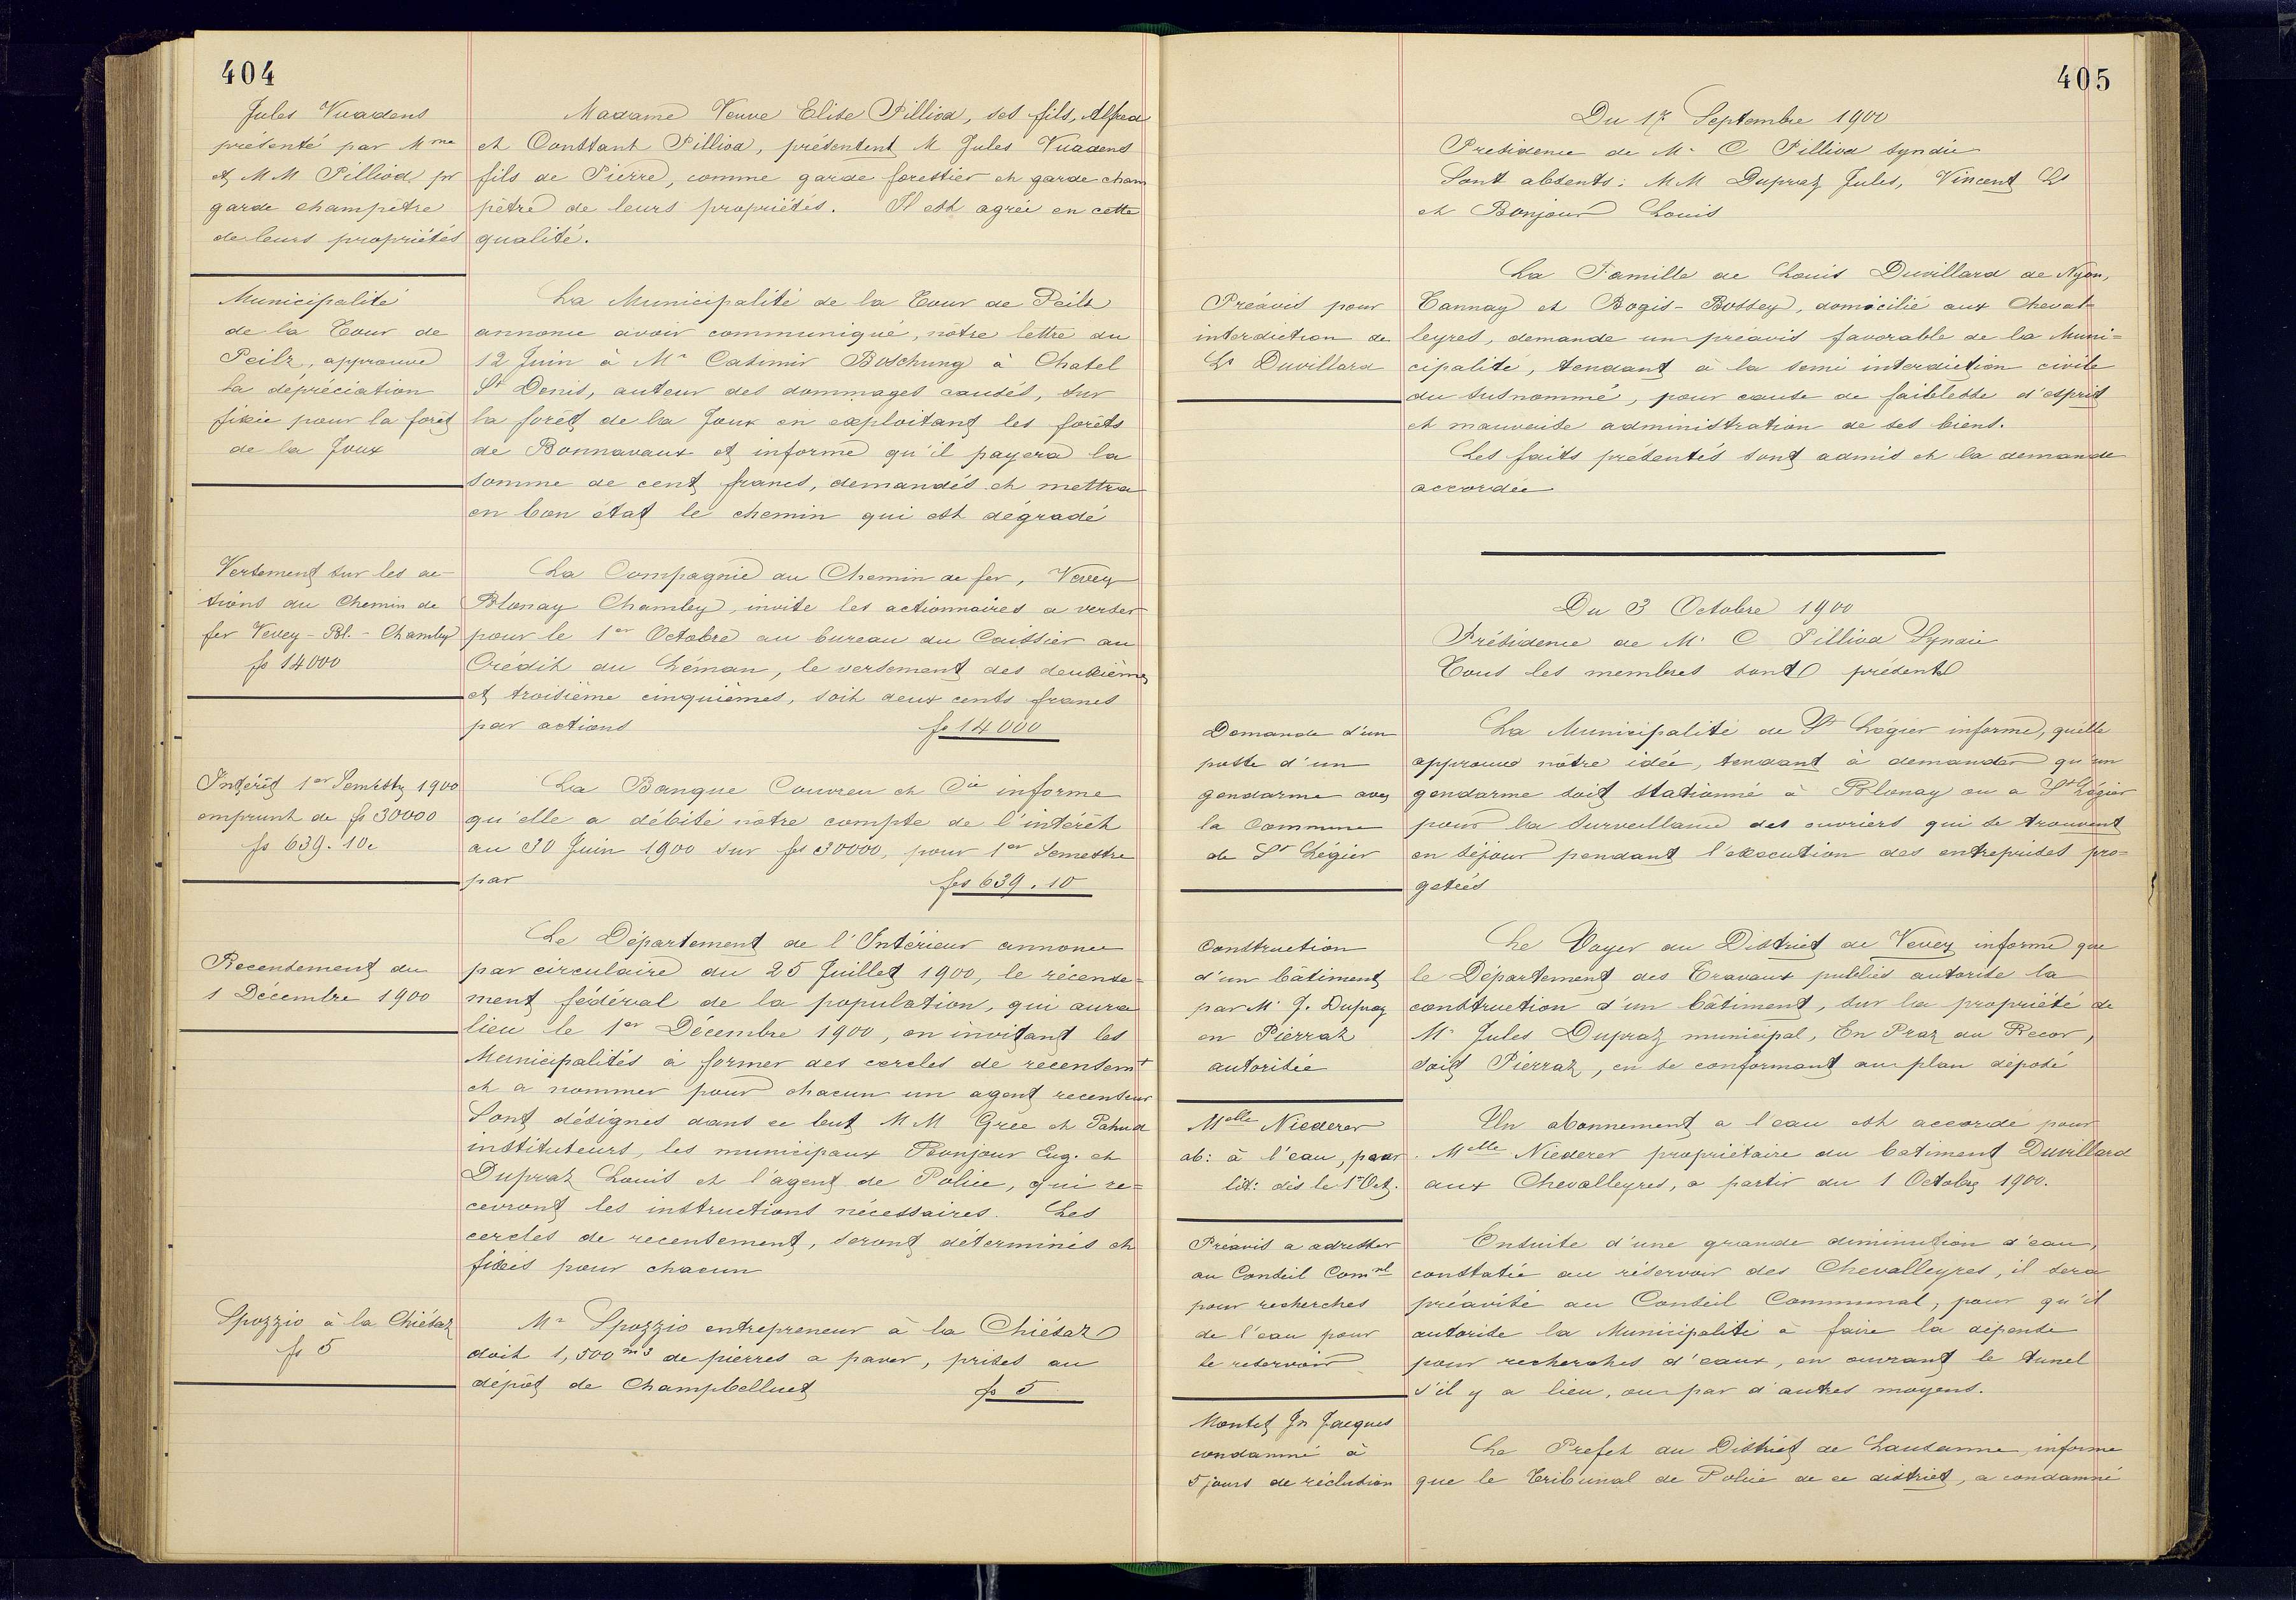 404
Jules Vuadens
présenté par Mme
et MM Pilliod pr
garde champêtre
de leurs propriétés
Madame Veuve Elise Pilliod, ses fils, Alfred
et Constant Pilliod, présentent M Jules Vuadens
fils de Pierre, comme garde forestier et garde cham
pêtre de leurs propriétés. Il est agréé en cette
qualité.
Municipalité
de la Tour de
Peilz, approuve
la dépréciation
fixée pour la forêt
de la Joux
La Municipalité de la Tour de Peilz
annonce avoir communiqué, nôtre lettre du
12 Juin à Mr Casimir Boschung à Chatel
St Denis, auteur des dommages causés, sur
la forêt de la Joux en exploitant les forêts
de Bonnavaux et informe qu'il payera la
somme de cent francs, demandés et mettra
en bon état le chemin qui est dégradé
Versement sur les ac-
tions du Chemin de
fer Vevey - Bl. - Chamby
fs 14000
La Compagnie du Chemin de fer, Vevey
Blonay Chamby, invite les actionnaires a verser
pour le 1er Octobre au bureau du Caissier au
Crédit du Léman, le versement des deuxième
et troisième cinquièmes, soit deux cents francs
par actions fs 14000
Intérêt 1er Semestre 1900
emprunt de fs 30000
fs 639.10c
La Banque Couvreu et Cie informe
qu'elle a débité nôtre compte de l'intérêt
au 30 Juin 1900 sur fs 30000, pour 1er Semestre
par fcs 639.10
Recensement du
1 Décembre 1900
Le Département de l'Intérieur annonce
par circulaire du 25 Juillet 1900, le récense=
ment fédéral de la population, qui aura
lieu le 1er Décembre 1900, en invitant les
Municipalités à former des cercles de recensemt
et a nommer pour chacun un agent recenseur
Sont désignés dans ce but MM Grée et Pahud
instituteurs, les municipaux Bonjour Eug. et
Dupraz Louis et l'agent de Police, qui re=
cevront les instructions nécessaires. Les
cercles de recensement, seront déterminés et
fixés pour chacun
Spozzio à la Chiésaz
fs 5
Mr Spozzio entrepreneur à la Chiésaz
doit 1,500 m3 de pierres a paver, prises au
dépôt de Champbelluet fs 5
405
Du 17 Septembre 1900
Presidence de Mr C Pilliod syndic
Sont absents: MM Dupraz Jules, Vincent Ls
et Bonjour Louis
Préavis pour
interdiction de
Ls Duvillard
La Famille de Louis Duvillard de Nyon,
Tannay et Bogis-Bossey, domicilié aux Cheval
leyres, demande un préavis favorable de la Muni=
cipalité, tendant à la semi interdiction civile
du susnommé, pour cause de faiblesse d'esprit
et mauvaise administration de ses biens.
Les faits présentés sont admis et la demande
accordée
Du 3 Octobre 1900
Présidence de Mr C Pilliod Syndic
Tous les membres sont présents
Demande d'un
poste d'un
gendarme avec
la Commune
de St Légier
La Municipalité de St Légier informe, qu'elle
approuve nôtre idée, tendant à demander qu'un
gendarme soit stationné à Blonay ou a St Légier
pour la surveillance des ouvriers qui se trouvent
en séjour pendant l'éxecution des entreprises pro=
getées
Construction
d'un bâtiment
par Mr J. Dupraz
en Pierraz
autorisée
Le Voyer du District de Vevey informe que
le Département des Travaux publics autorise la
construction d'un bâtiment, sur la propriété de
Mr Jules Dupraz municipal, En Praz au Recor,
soit Pierraz, en se conformant au plan déposé
Melle Niederer
ab: à l'eau, pour
lit: dès le 1r Oct.
Un abonnement a l'eau est accordé pour
Melle Niederer propriétaire du batiment Duvillard
aux Chevalleyres, a partir du 1 Octobre 1900.
Préavis a adresser
au Conseil Comnl
pour recherches
de l'eau pour
le reservoir
Ensuite d'une grande diminution d'eau,
constatée au réservoir des Chevalleyres, il sera
préavisé au Conseil Communal, pour qu'il
autorise la Municipalité à faire la dépense
pour recherches d'eaux, en ouvrant le tunel
s'il y a lieu, ou par d'autres moyens.
Montet Jn Jacques
condamné à
5 jours de réclusion
Le Prefet du District de Lausanne, informe
que le Tribunal de Police de ce district, a condamné